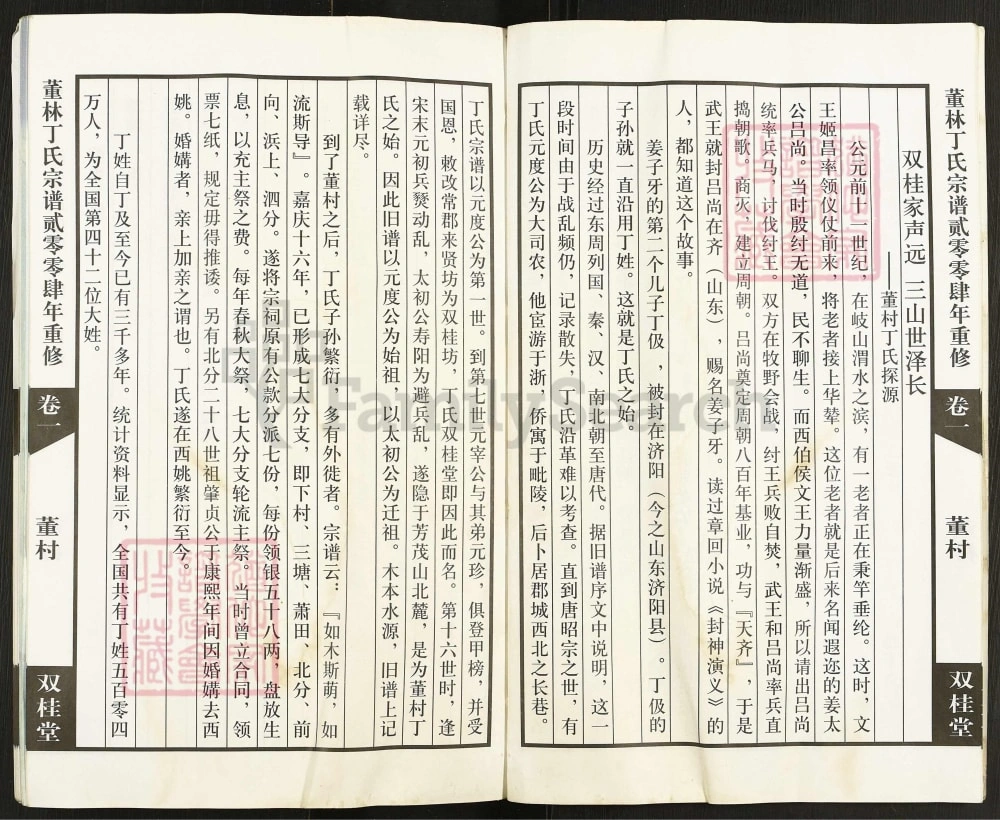 董林丁氏宗谱贰零零肆年重修
卷一
董村
双桂堂
双桂家声远 三山世泽长
——董村丁氏探源
公元前十一世纪，在岐山渭水之滨，有一老者正在秉竿垂纶。这时，文
王姬昌率领仪仗前来，将老者接上华辇。这位老者就是后来名闻遐迩的姜太
公吕尚。当时殷纣无道，民不聊生。而西伯侯文王力量渐盛，所以请出吕尚
统率兵马，讨伐纣王。双方在牧野会战，纣王兵败自焚，武王和吕尚率兵直
捣朝歌。商灭，建立周朝。吕尚奠定周朝八百年基业，功与『天齐』，于是
武王就封吕尚在齐（山东），赐名姜子牙。读过章回小说《封神演义》的
人，都知道这个故事。
姜子牙的第二个儿子丁伋，被封在济阳（今之山东济阳县）。丁伋的
子孙就一直沿用丁姓。这就是丁氏之始。
历史经过东周列国、秦、汉、南北朝至唐代。据旧谱序文中说明，这一
段时间由于战乱频仍，记录散失，丁氏沿革难以考查。直到唐昭宗之世，有
丁氏元度公为大司农，他宦游于浙，侨寓于毗陵，后卜居郡城西北之长巷。
丁氏宗谱以元度公为第一世。到第七世元宰公与其弟元珍，俱登甲榜，并受
国恩，敕改常郡来贤坊为双桂坊，丁氏双桂堂即因此而名。第十六世时，逢
宋末元初兵燹动乱，太初公寿阳为避兵乱，遂隐于芳茂山北麓，是为董村丁
氏之始。因此旧谱以元度公为始祖，以太初公为迁祖。木本水源，旧谱上记
载详尽。
到了董村之后，丁氏子孙繁衍，多有外徙者。宗谱云：『如木斯萌，如
流斯导』。嘉庆十六年，已形成七大分支，即下村、三塘、萧田、北分、前
向、浜上、泗分。遂将宗祠原有公款分派七份，每份领银五十八两，盘放生
息，以充主祭之费。每年春秋大祭，七大分支轮流主祭。当时曾立合同，领
票七纸，规定毋得推诿。另有北分二十八世祖肇贞公于康熙年间因婚媾去西
姚。婚媾者，亲上加亲之谓也。丁氏遂在西姚繁衍至今。
丁姓自丁及至今已有三千多年。统计资料显示，全国共有丁姓五百零四
万人，为全国第四十二位大姓。
董林丁氏宗谱贰零零肆年重修
卷一
董村
双桂堂
FamilySearch